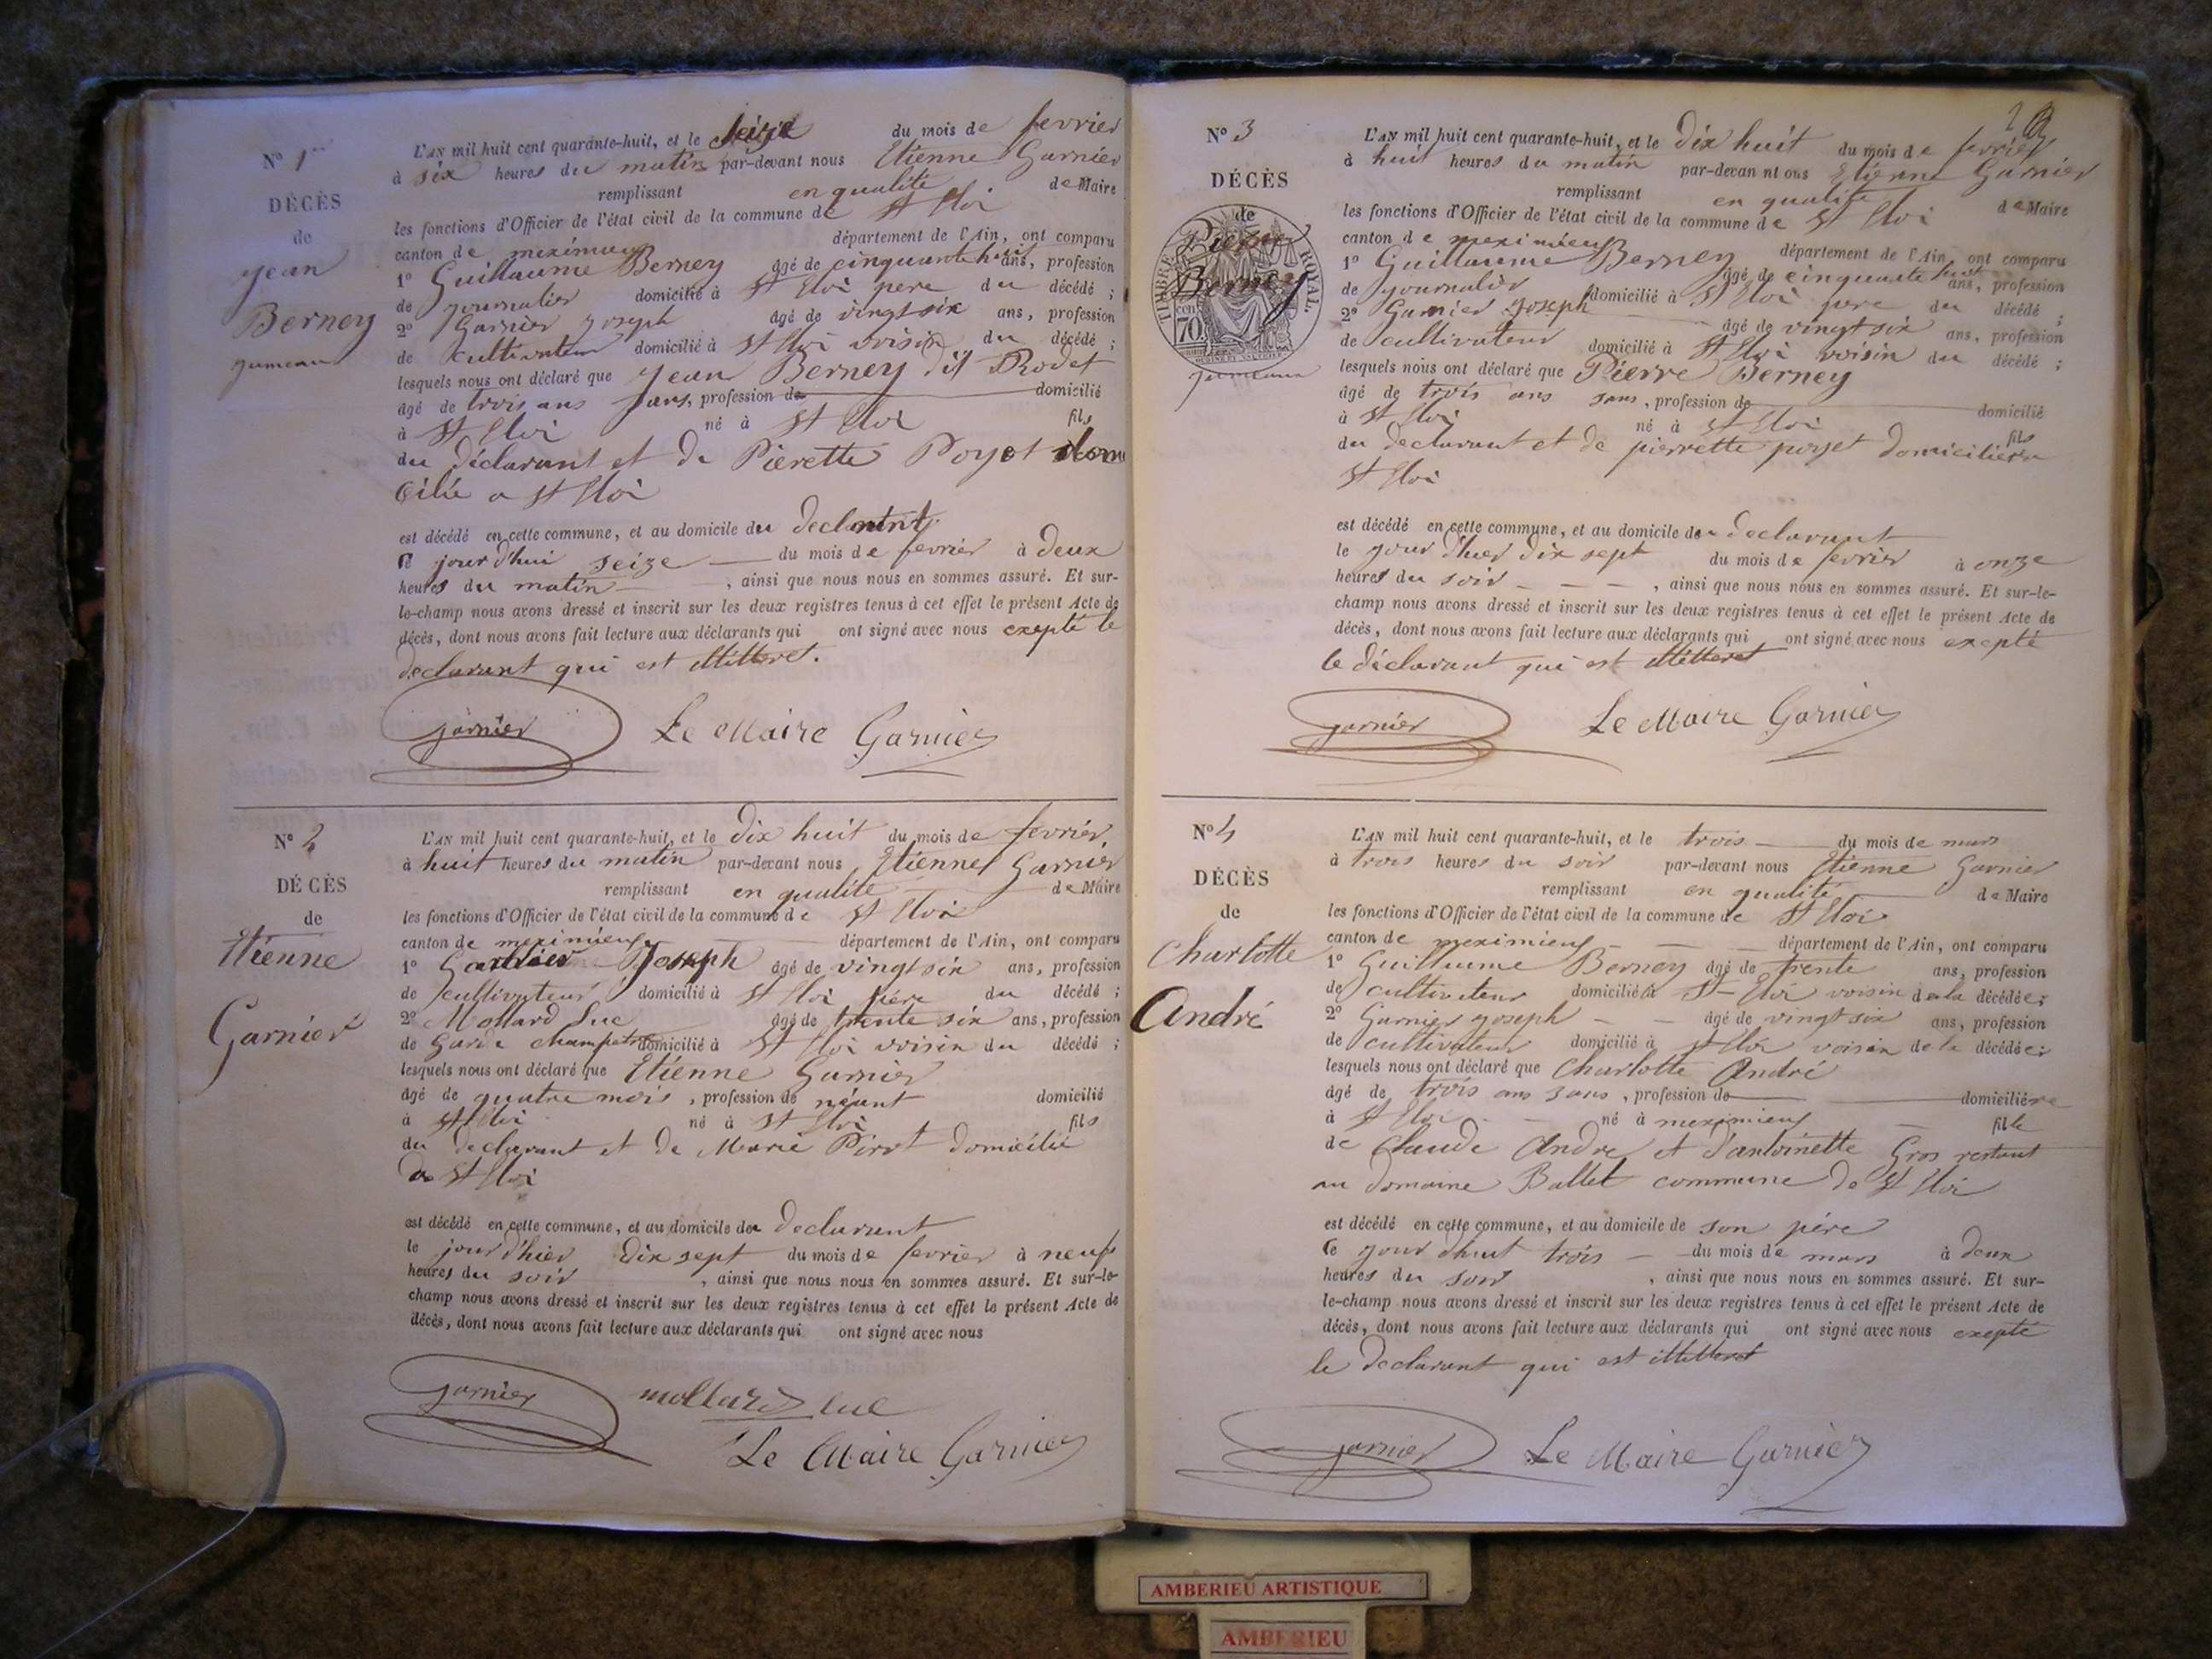 N° 1er
DÉCÈS
de
Jean
Berney
jumeau
L'AN mil huit cent quarante-huit, et le seize du mois de fevrier
à six heures du matin par-devant nous Etienne Garnier
remplissant en qualité de Maire
les fonctions d'Officier de l'état civil de la commune de St Eloi
canton de meximieux département de l'Ain, ont comparu
1° Guillaume Berney âgé de cinquante huit ans, profession
de journalier domicilié à St Eloi pere du décédé ;
2° Garnier joseph âgé de vingt six ans, profession
de cultivateur domicilié à St Eloi voisin du décédé ;
lesquels nous ont déclaré que Jean Berney dit Rodet
âgé de trois ans sans, profession de domicilié
à St Eloi né à St Eloi fils
du déclarant et de Pierette Poyet domi
cilié a St Eloi
est décédé en cette commune, et au domicile du declarant
le jourd'hui seize du mois de fevrier à deux
heures du matin , ainsi que nous nous en sommes assuré. Et sur-
le-champ nous avons dressé et inscrit sur les deux registres tenus à cet effet le présent Acte de
décès, dont nous avons fait lecture aux déclarants qui ont signé avec nous exepté le
declarant qui est illitteret.
garnier Le Maire Garnier
N° 2
DÉCÈS
de
Etienne
Garnier
L'AN mil huit cent quarante-huit, et le dix huit du mois de fevrier,
à huit heures du matin par-devant nous Etienne Garnier
remplissant en qualité de Maire
les fonctions d'Officier de l'état civil de la commune de St Eloi
canton de meximieux département de l'Ain, ont comparu
1° Garnier Joseph âgé de vingt six ans, profession
de cultivateur domicilié à St Eloi père du décédé ;
2° Mollard Luc âgé de trente six ans, profession
de Garde champetre domicilié à St Eloi voisin du décédé ;
lesquels nous ont déclaré que Etienne Garnier
âgé de quatre mois , profession de néant domicilié
à St Eloi né à St Eloi fils
du declarant et de Marie Pirot domicilié
a St Eloi
est décédé en cette commune, et au domicile du declarant
le jour d'hier dix sept du mois de fevrier à neuf
heures du soir , ainsi que nous nous en sommes assuré. Et sur-le-
champ nous avons dressé et inscrit sur les deux registres tenus à cet effet le présent Acte de
décès, dont nous avons fait lecture aux déclarants qui ont signé avec nous
garnier mollard luc
Le Maire Garnier
2
N° 3
DÉCÈS
de
Pierre
Berney
jumeau
TIMBRE ROYAL
70 cen
L'AN mil huit cent quarante-huit, et le dix huit du mois de fevrier
à huit heures du matin par-devan nt ous Etienne Garnier
remplissant en qualité de Maire
les fonctions d'Officier de l'état civil de la commune de St Eloi
canton de meximieux département de l'Ain, ont comparu
1° Guillaume Berney âgé de cinquante huit ans, profession
de journalier domicilié à St Eloi pere du décédé ;
2° Garnier Joseph âgé de vingt six ans, profession
de cultivateur domicilié à St Eloi voisin du décédé ;
lesquels nous ont déclaré que Pierre Berney
âgé de trois ans sans , profession de domicilié
à St Eloi né à St Eloi fils
du declarant et de pierrette poyet domiciliés a
St Eloi
est décédé en cette commune, et au domicile du declarant
le jour d'hier dix sept du mois de fevrier à onze
heures du soir , ainsi que nous nous en sommes assuré. Et sur-le-
champ nous avons dressé et inscrit sur les deux registres tenus à cet effet le présent Acte de
décès, dont nous avons fait lecture aux déclarants qui ont signé avec nous exepté
le déclarant qui est illitteret
garnier Le Maire Garnier
N° 4
DÉCÈS
de
Charlotte
André
L'AN mil huit cent quarante-huit, et le trois du mois de mars
à trois heures du soir par-devant nous Etienne Garnier
remplissant en qualité de Maire
les fonctions d'Officier de l'état civil de la commune de St Eloi
canton de meximieux département de l'Ain, ont comparu
1° Guillaume Berney âgé de trente ans, profession
de cultivateur domicilié à St Eloi voisin de la décédée ;
2° Garnier joseph âgé de vingt six ans, profession
de cultivateur domicilié à St Eloi voisin de la décédée ;
lesquels nous ont déclaré que Charlotte André
âgé de trois ans sans , profession de domiciliée
à St Eloi né à meximieux fille
de Claude André et d'antoinette Gros restant
au domaine Ballet commune de St Eloi
est décédé en cette commune, et au domicile de son père
le jour dhui trois du mois de mars à deux
heures du soir , ainsi que nous nous en sommes assuré. Et sur-
le-champ nous avons dressé et inscrit sur les deux registres tenus à cet effet le présent Acte de
décès, dont nous avons fait lecture aux déclarants qui ont signé avec nous exepté
le declarant qui est illitteret
garnier Le Maire Garnier
AMBERIEU ARTISTIQUE
AMBERIEU